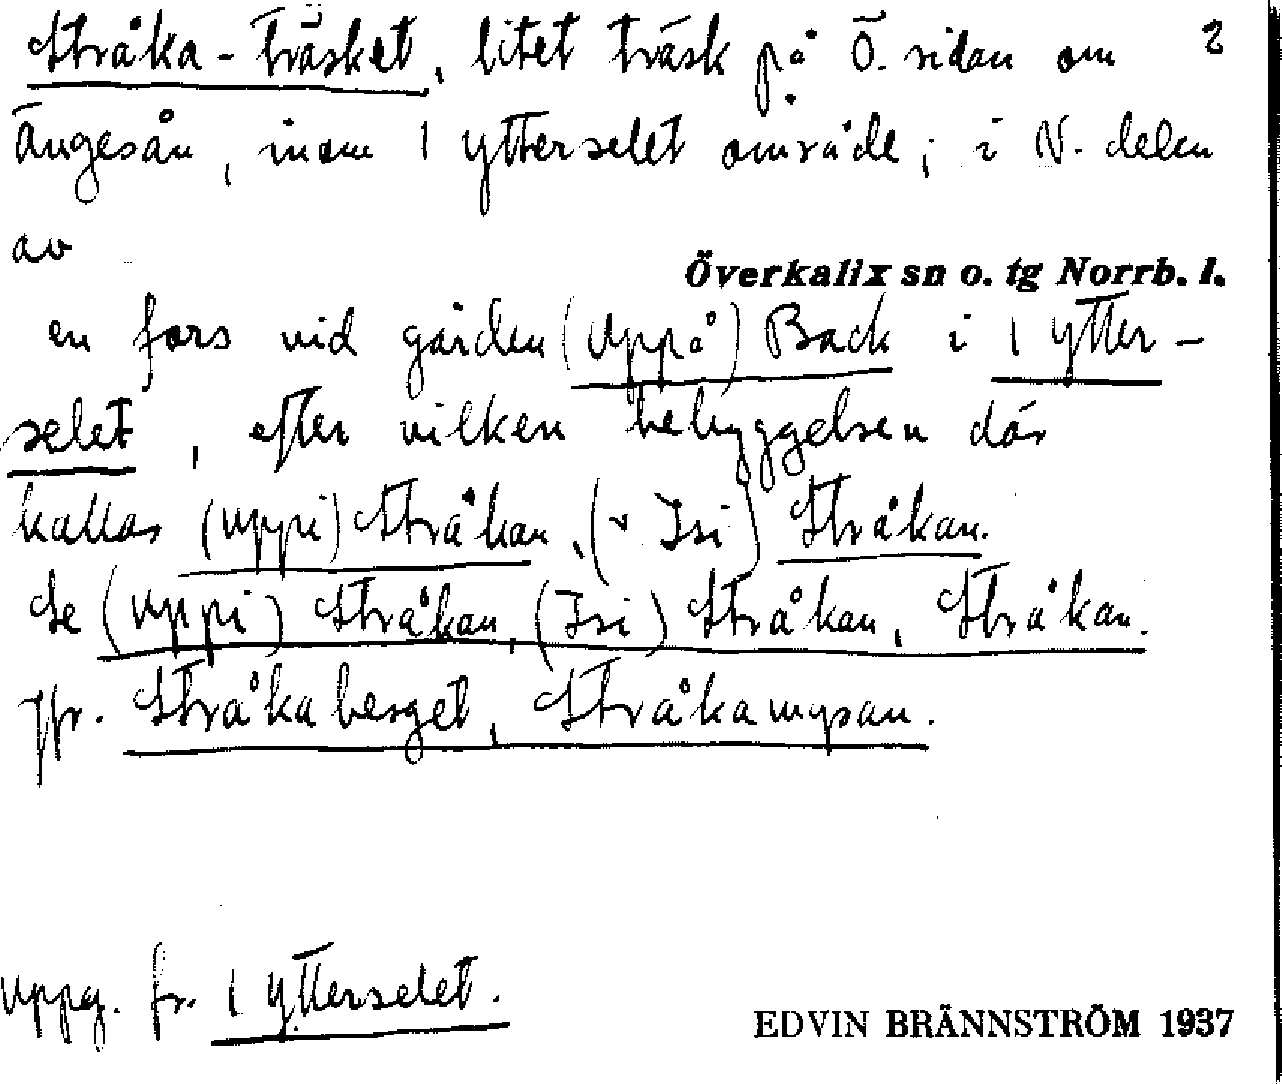 Stråka-träsket, litet träsk på Ö. sidan om 2
Ängesån, inom 1 Ytterselet område; i N. delen
av
Överkalix sn o. tg Norrb. l.
en fors vid gården (Uppå) Back i 1 Ytter-
selet, efter vilken bebyggelsen där
kallas (Uppi) Stråkan, (v Isi) Stråkan.
Se (Uppi) Stråkan, (Isi) Stråkan, Stråkan.
Jfr. Stråkaberget, Stråkamyran.
Uppg. fr. 1 Ytterselet.
EDVIN BRÄNNSTRÖM 1937